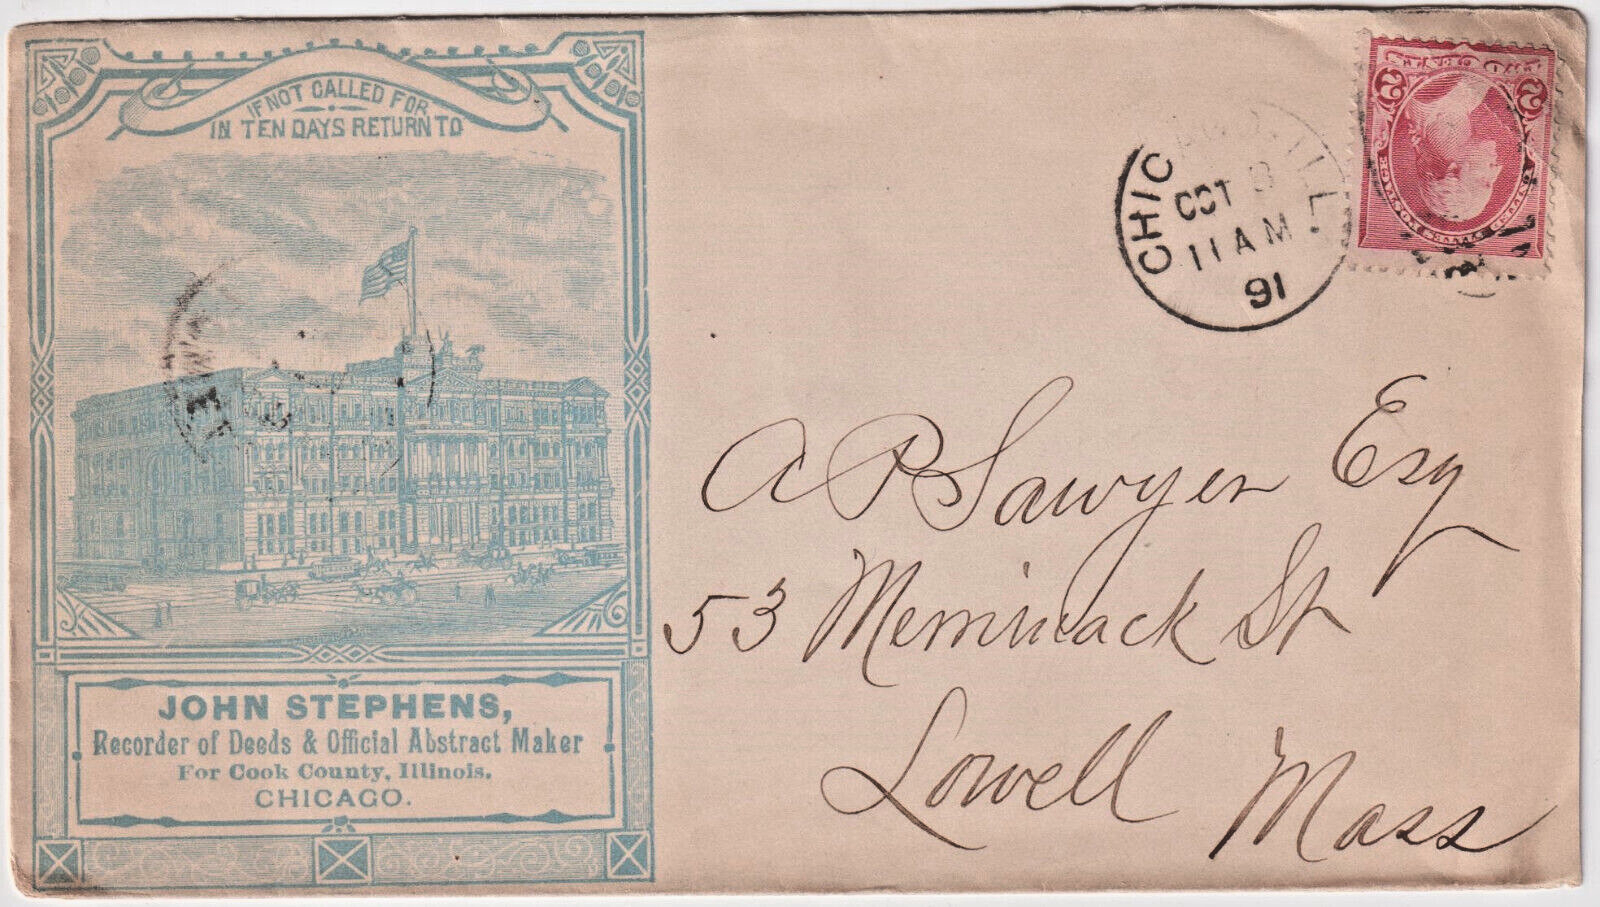 IF NOT CALLED FOR
IN TEN DAYS RETURN TO
JOHN STEPHENS,
Recorder of Deeds & Official Abstract Maker
For Cook County, Illinois.
CHICAGO.
CHICAGO, ILL.
OCT
11 AM
91
2 2
A P Sawyer Esq
53 Merrimack St
Lowell Mass